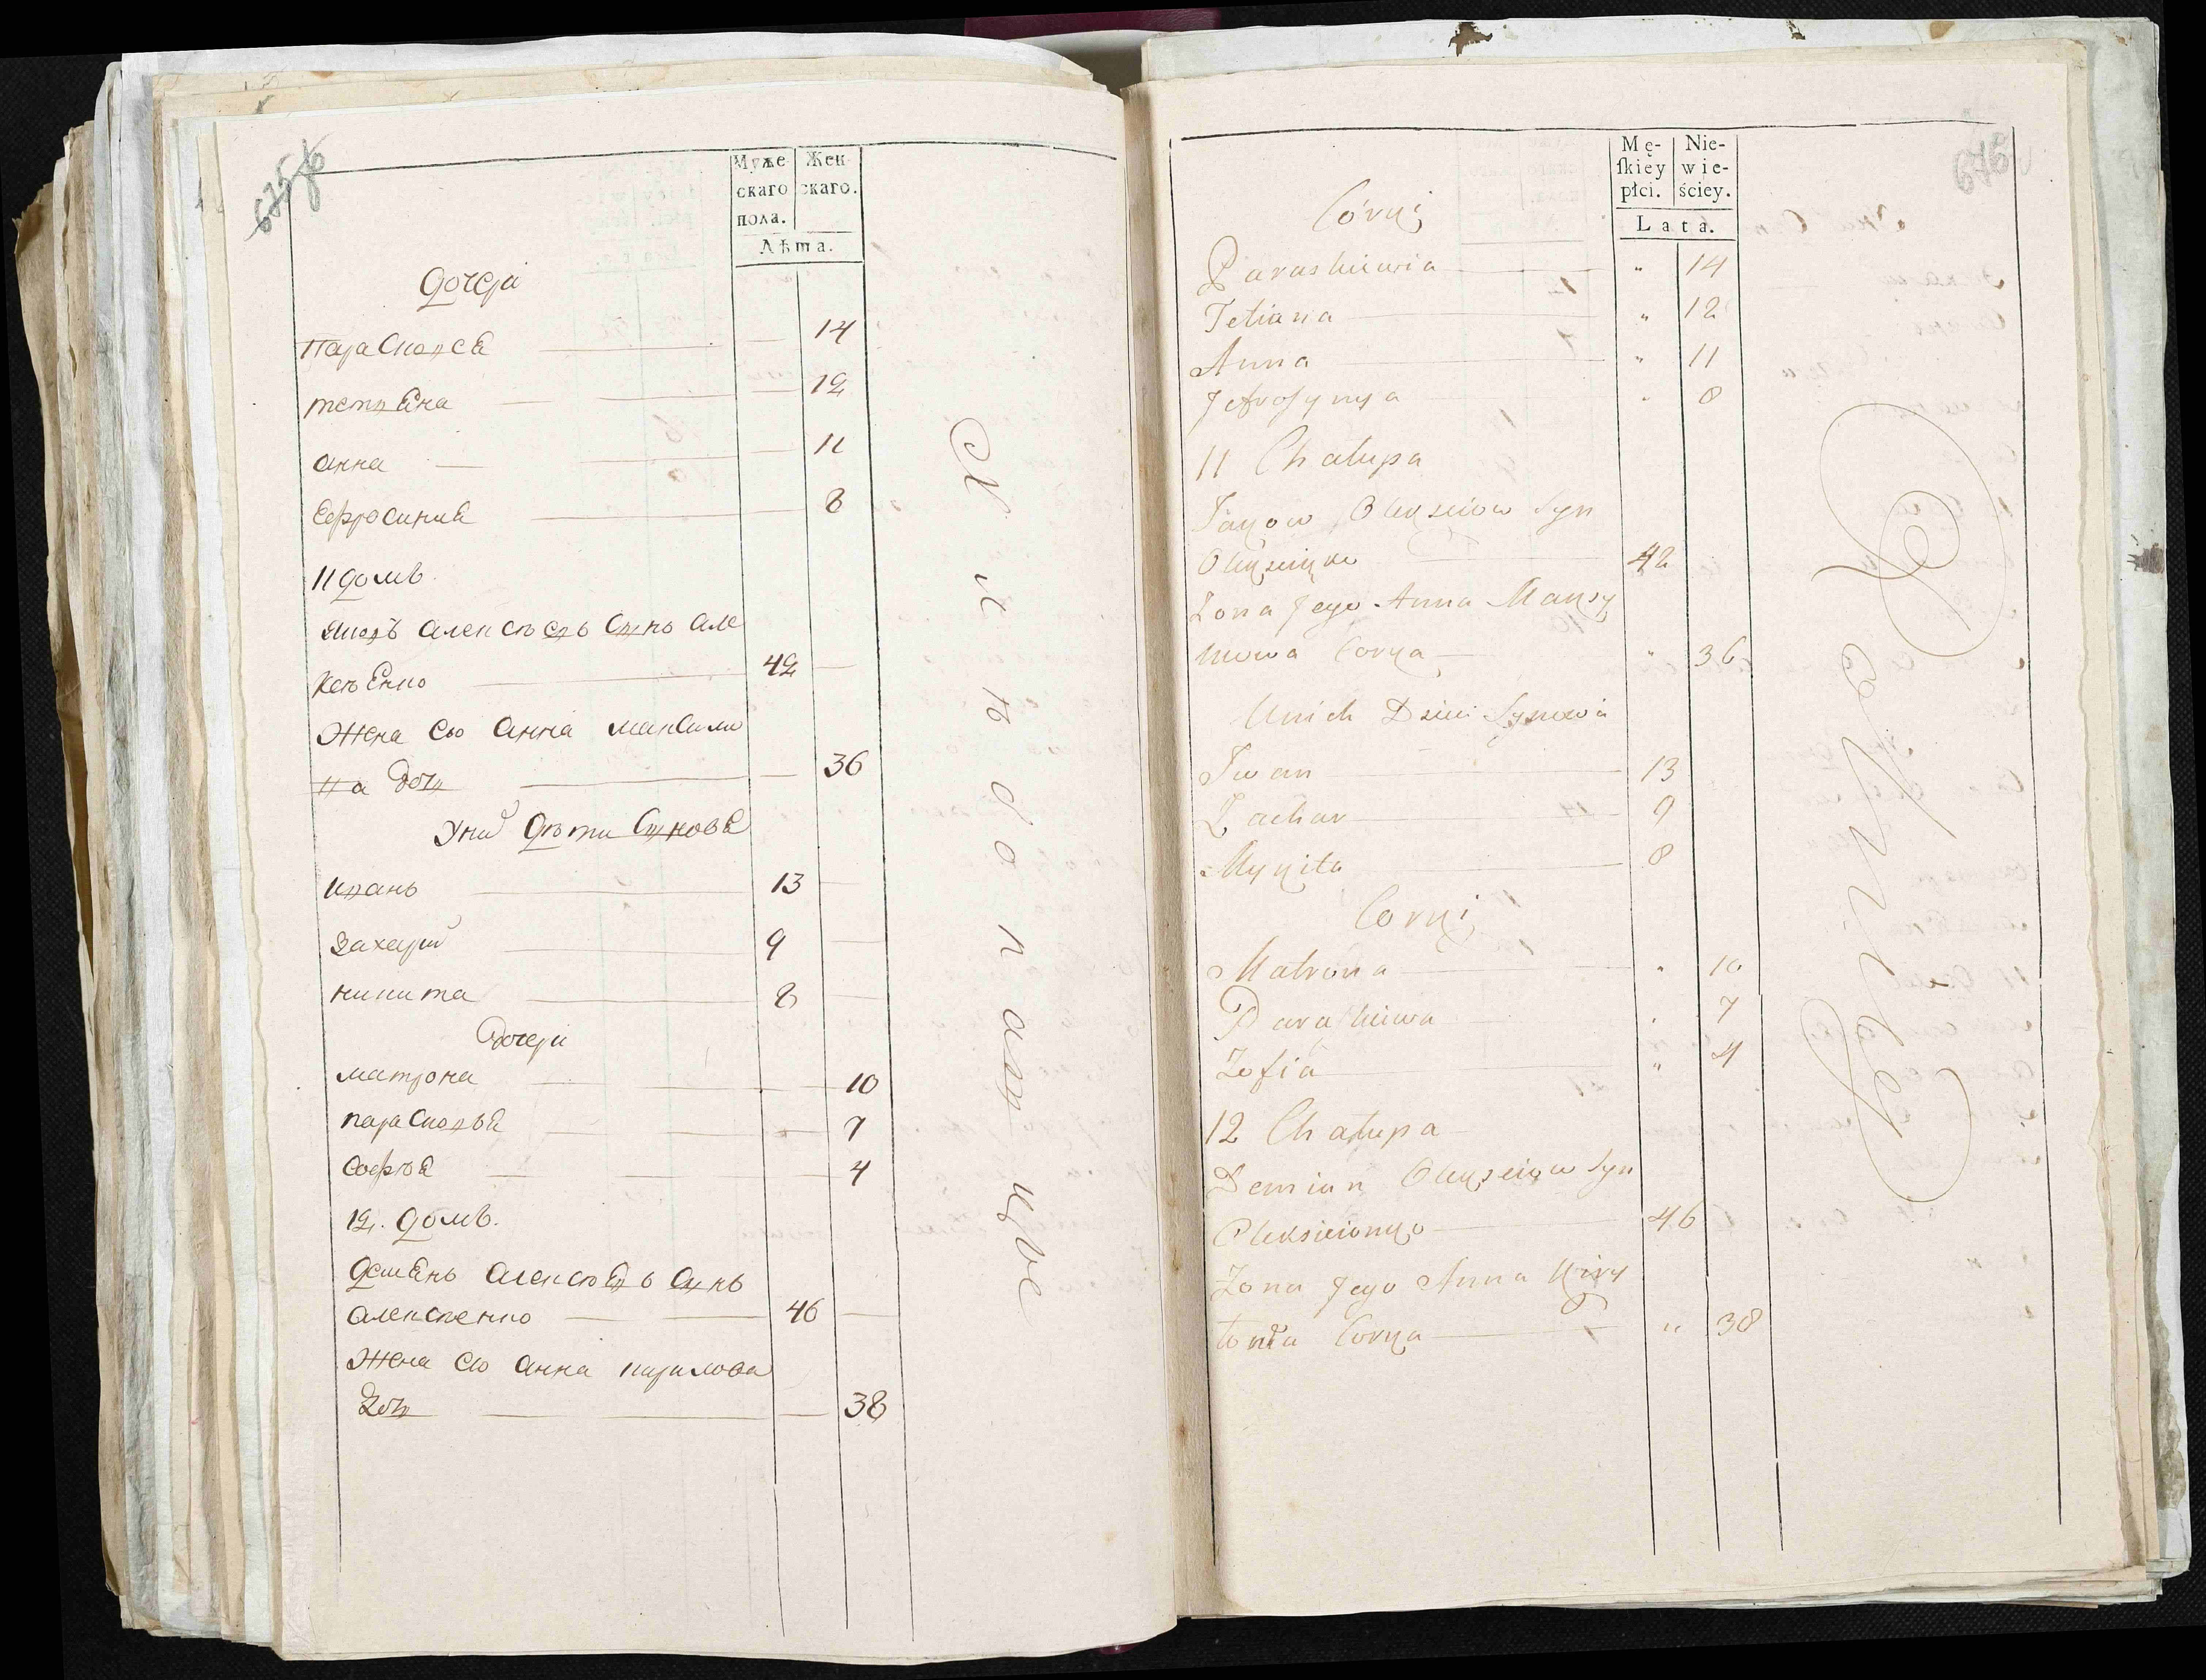 675об
Муже- Жен-
скаго скаго.
пола.
Лѣта.
дочери
Парасковея 14
тетяна 12
анна 11
Ефросиния 8
11 домъ.
Яковъ алексѣевъ Сынъ але
ксѣенко 42
Жена его анна максимо
ва дочь 36
Уних дѣти Сыновя
иванъ 13
Захарий 9
никита 8
дочери
матрона 10
парасковья 7
Софѣя 4
12. домъ.
демянъ алексѣевъ Сынъ
алексеенко 46
Жена его анна кирилова
дочь 38
676
Mę- Nie-
ſkiey wie-
płci. ściey.
Lata.
Córki
Paraskiewia " 14
Tetiana " 12
Anna " 11
Jefrosynya " 8
11 Chałupa
Jakow Olekseiow Syn
Olekseięko 42
Zona Jego Anna Maksy
mowa Corka " 36
Unich Dzieci Synowia
Iwan 13
Zachar 9
Mykita 8
Corki
Matrona " 10
Paraskiewa " 7
Zofia " 4
12 Chałupa
Demian Olekseiow Syn
Oleksieionko 46
Zona Jego Anna Kiry
Corka " 38